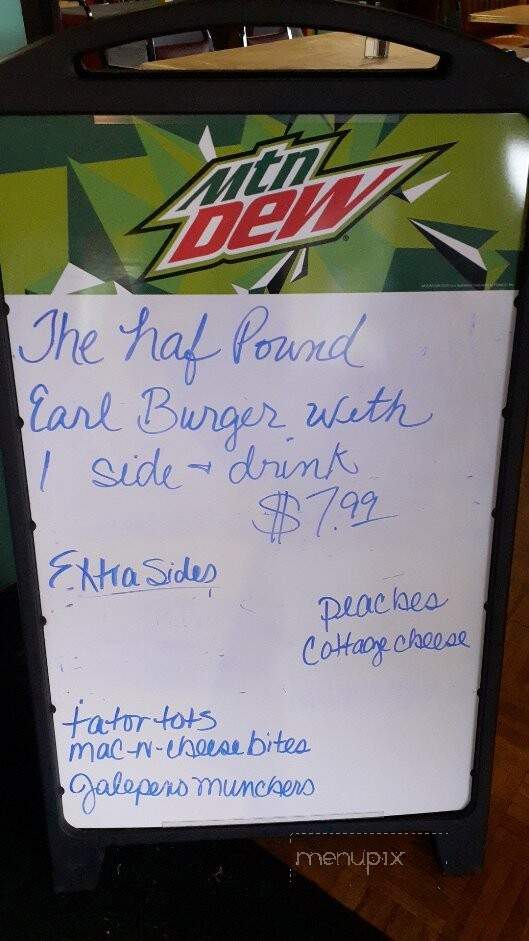 Mtn
Dew
The haf Pound
Earl Burger with
1 side + drink
$7.99
Extra Sides
peaches
Cottage cheese
tator tots
mac-N-cheese bites
Jalepeno munchers
menupix